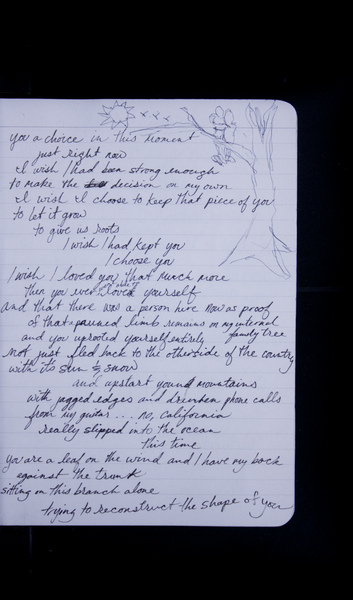 you a choice in this moment
just right now
I wish I had been strong enough
to make the decision on my own
I wish I choose to keep that piece of you
to let it grow
to give us roots
I wish I had kept you
I choose you
I wish I loved you that much more
then you ever loved yourself
and that there was a person here now as proof
of that pruned limb remains on my internal
family tree
and you uprooted yourself entirely
not just fled back to the otherside of the country
with its sun & snow
and upstart young mountains
with jagged edges and drunken phone calls
from my guitar . . . no, California
really slipped into the ocean
this time
you are a leaf on the wind and I have my back
against the trunk
sitting on this branch alone
trying to reconstruct the shape of you